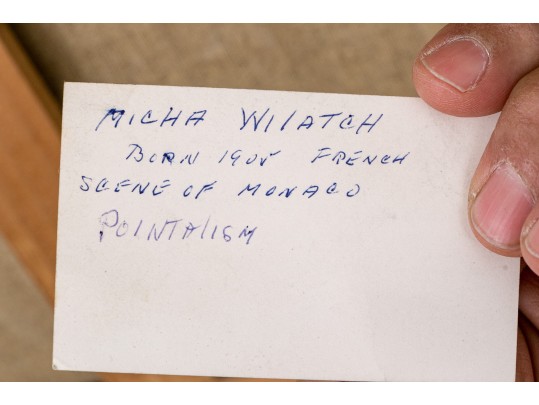 MICHA WILATCH
BORN 1905 FRENCH
SCENE OF MONACO
POINTALISM